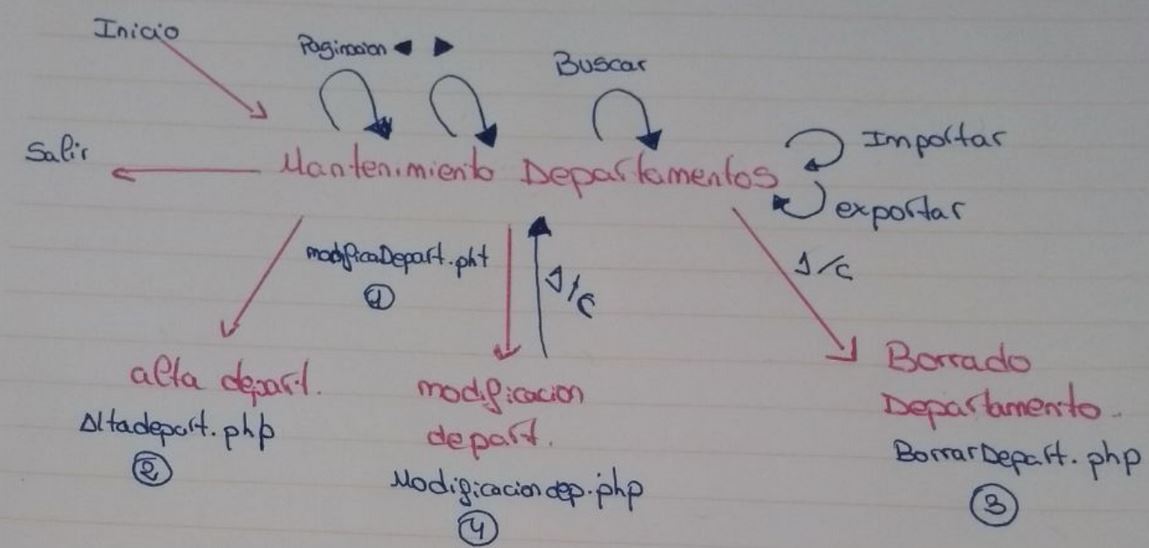 Inicio
Paginacion ◄ ►
Buscar
Importar
Salir
Mantenimiento Departamentos
exportar
modificaDepart.pht
①
1/c
1/c
alta depart.
Altadepart.php
②
modificacion
depart.
Modificaciondep.php
④
Borrado
Departamento.
BorrarDepart.php
③